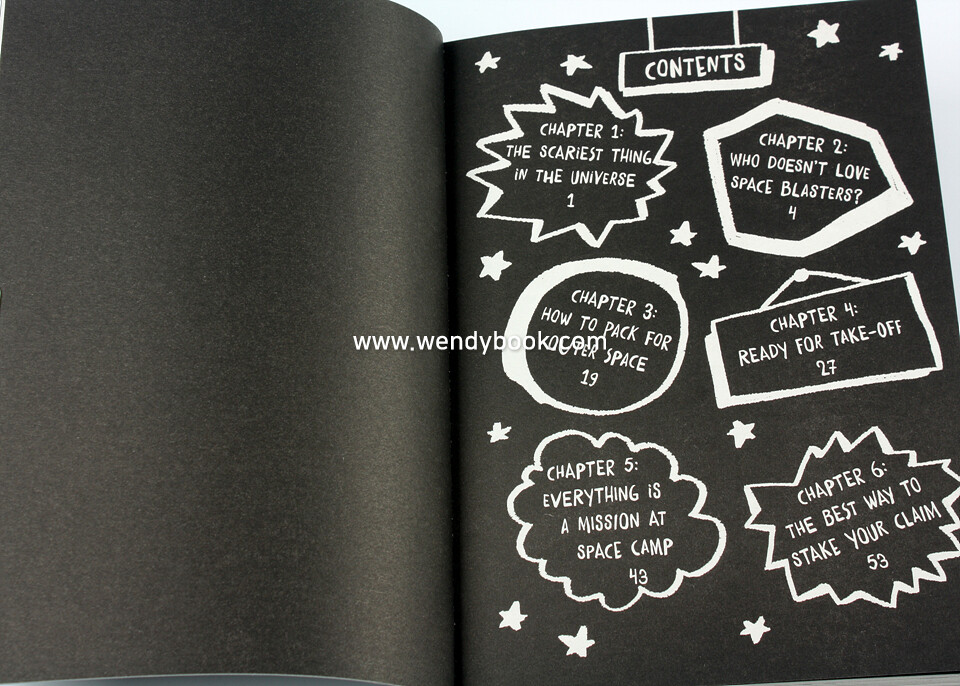 CONTENTS
CHAPTER 1:
THE SCARIEST THING
IN THE UNIVERSE
1
CHAPTER 2:
WHO DOESN'T LOVE
SPACE BLASTERS?
4
CHAPTER 3:
HOW TO PACK FOR
OUTER SPACE
19
CHAPTER 4:
READY FOR TAKE-OFF
27
www.wendybook.com
CHAPTER 5:
EVERYTHING IS
A MISSION AT
SPACE CAMP
43
CHAPTER 6:
THE BEST WAY TO
STAKE YOUR CLAIM
53